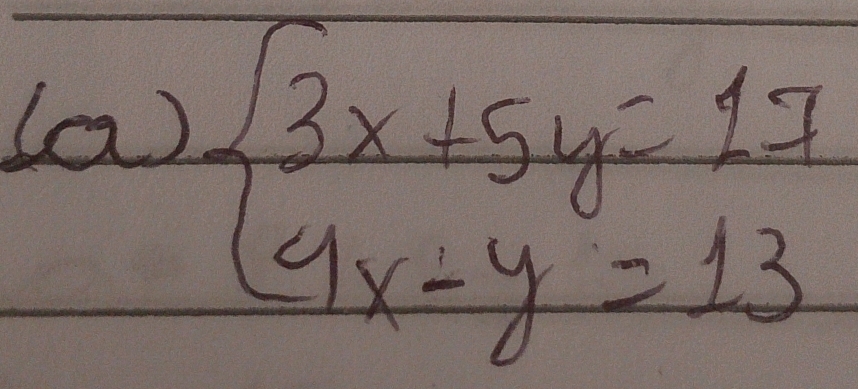 (a) { 3x + 5y = 17
4x - y = 13